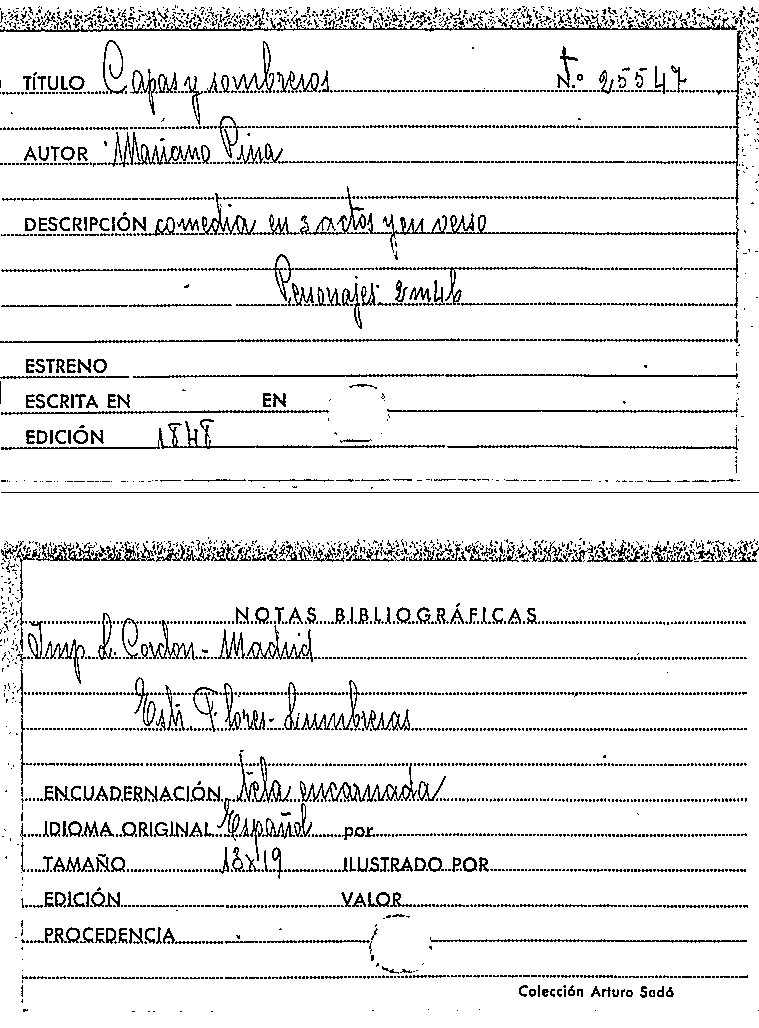 TÍTULO Capas y sombreros N.º 25547
AUTOR Mariano Pina
DESCRIPCIÓN comedia en 3 actos y en verso
Personajes: 2m4h
ESTRENO
ESCRITA EN EN
EDICIÓN 1848
NOTAS BIBLIOGRÁFICAS
Imp. L. Cordon - Madrid
Flores - Lumbreras
ENCUADERNACIÓN tela encarnada
IDIOMA ORIGINAL Español por
TAMAÑO 13x19 ILUSTRADO POR
EDICIÓN VALOR
PROCEDENCIA
Colección Arturo Sedó